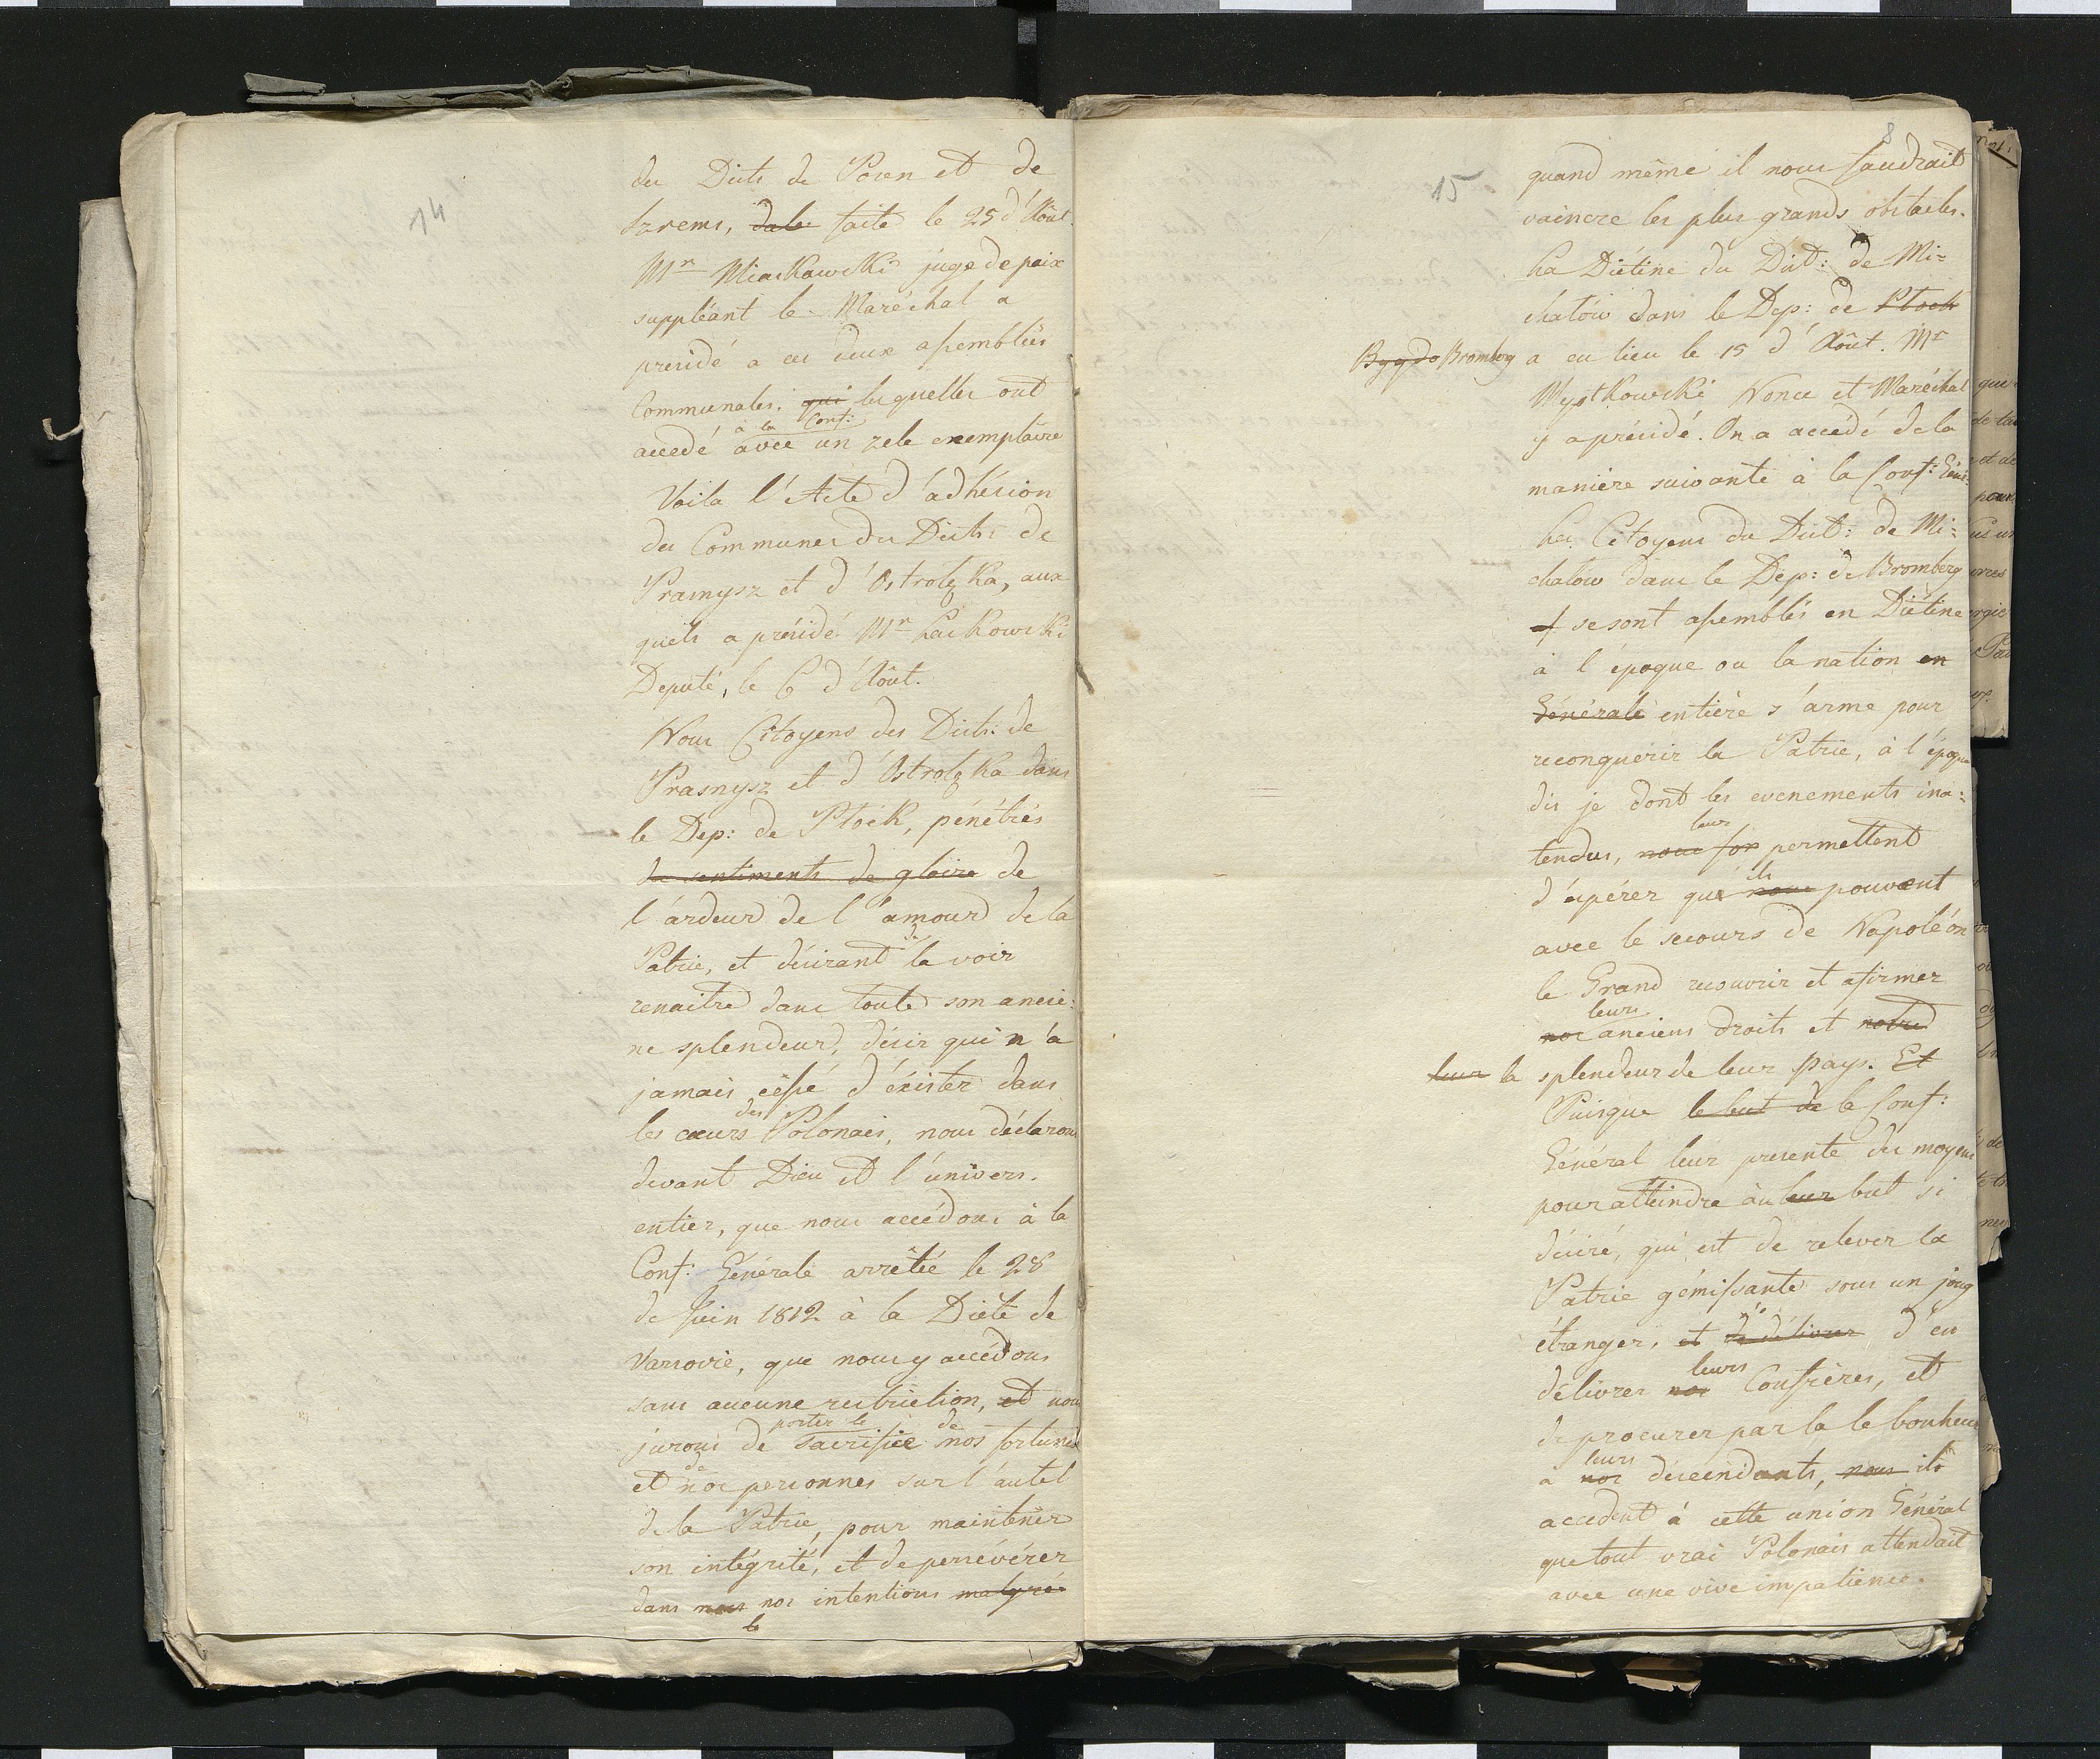 14
des Dists de Posen et de
Szrems, faite le 25 d'Août
Mr Miaskowski juge de paix
suppléant le Maréchal a
presidé a ces deux assemblées
Communales, qui lesquelles ont
à la Conf:
accedé avec un zele exemplaire
Voila l'Acte d'adhésion
des Communes du Distr: de
Prasnysz et d'Ostrołęka, aux
quels a présidé Mr Laskowski
Deputé, le 6 d'Août.
Nous Citoyens des Distr: de
Prasnysz et d'Ostrołęka dans
le Dep: de Płock, pénétrés
de sentiments de gloire de
l'ardeur de l'amour de la
de
Patrie, et désirant la voir
renaitre dans toute son ancie:
ne splendeur, désir qui n'a
jamais cessé d'éxister dans
des
les cœurs Polonais, nous déclarons
devant Dieu et l'univers.
entier, que nous accédons à la
Conf: Générale arrêtée le 28
de Juin 1812 à la Diète de
Varsovie, que nous y accédons
sans aucune restriction, et nous
porter le de
jurons de sacrifice nos fortunes
de
et nos personnes sur l'autel
de la Patrie, pour maintenir
son intégrité, et de persévérer
dans nous nos intentions malgré
le
8
15
quand même il nous faudrait
vaincre les plus grands obstacles.
La Diétine du Dist: de Mi=
chałów dans le Dep: de Płock
Bygdo Bromberg a eu lieu le 15 d'Août. Mr
Mystkowski Nonce et Maréchal
y a présidé. On a accédé de la
manière suivante à la Conf: Géné:
Les Citoyens du Dist: de Mi=
chałów dans le Dep: de Bromberg
se sont assemblés en Diétine
à l'époque ou la nation en
Générale entière s'arme pour
reconquerir la Patrie, à l'époque
dis je dont les evenements ina=
leur
tendus, nous for permettent
ils
d'espérer que nous pouvent
avec le secours de Napoléon
le Grand recouvrir et afirmer
leurs
nos anciens droits et notre
leur la splendeur de leur pays. Et
Puisque le but de la Conf:
Général leur presente des moyens
pour atteindre au leur but si
désiré, qui est de relever la
Patrie gémissante sous un joug
étranger, et de délivrer d'en
leurs
délivrer nos Confrères, et
de procurer par la le bonheur
leurs
a nos descendants, nous ils
accedent à cette union Général
que tout vrai Polonais attendait
avec une vive impatience.